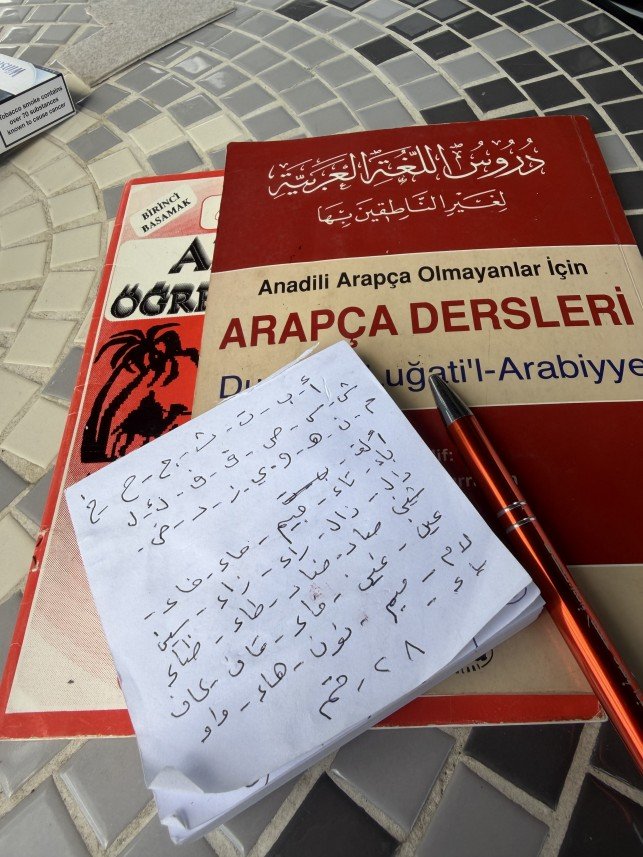 Tobacco smoke contains
over 70 substances
known to cause cancer
دُرُوسُ اللُّغَةِ الْعَرَبِيَّةِ
لِغَيْرِ النَّاطِقِينَ بِهَا
BİRİNCİ
BASAMAK
Anadili Arapça Olmayanlar İçin
ARAPÇA DERSLERİ
ÖĞRE
Du uğati'l-Arabiyye
أ - ب - ت - ث - ج - ح - خ
ش - س - ص - ق - ف - ل
م - ن - ه - و - ي - ز - ر - ض -
ألف
تاء - ميم - حاء - خاء -
ذال - راء - زاء - سين
شين صاد - ضاد - طاء - ظاء
عين - غين - فاء - قاف - كاف
لام - ميم - نون - هاء - واو